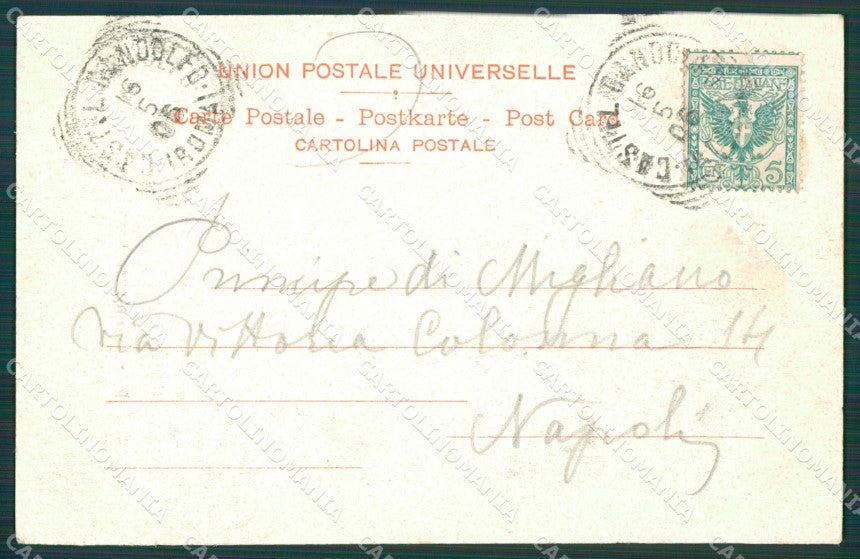 UNION POSTALE UNIVERSELLE
Carte Postale - Postkarte - Post Card
CARTOLINA POSTALE
CASTEL GANDOLFO
(ROMA)
16
5
CASTEL GANDOLFO
16
5
POSTE ITALIANE
CENT. 5
Principe di Migliano
Via Vittoria Colonna 14
Napoli
CARTOLINOMANIA